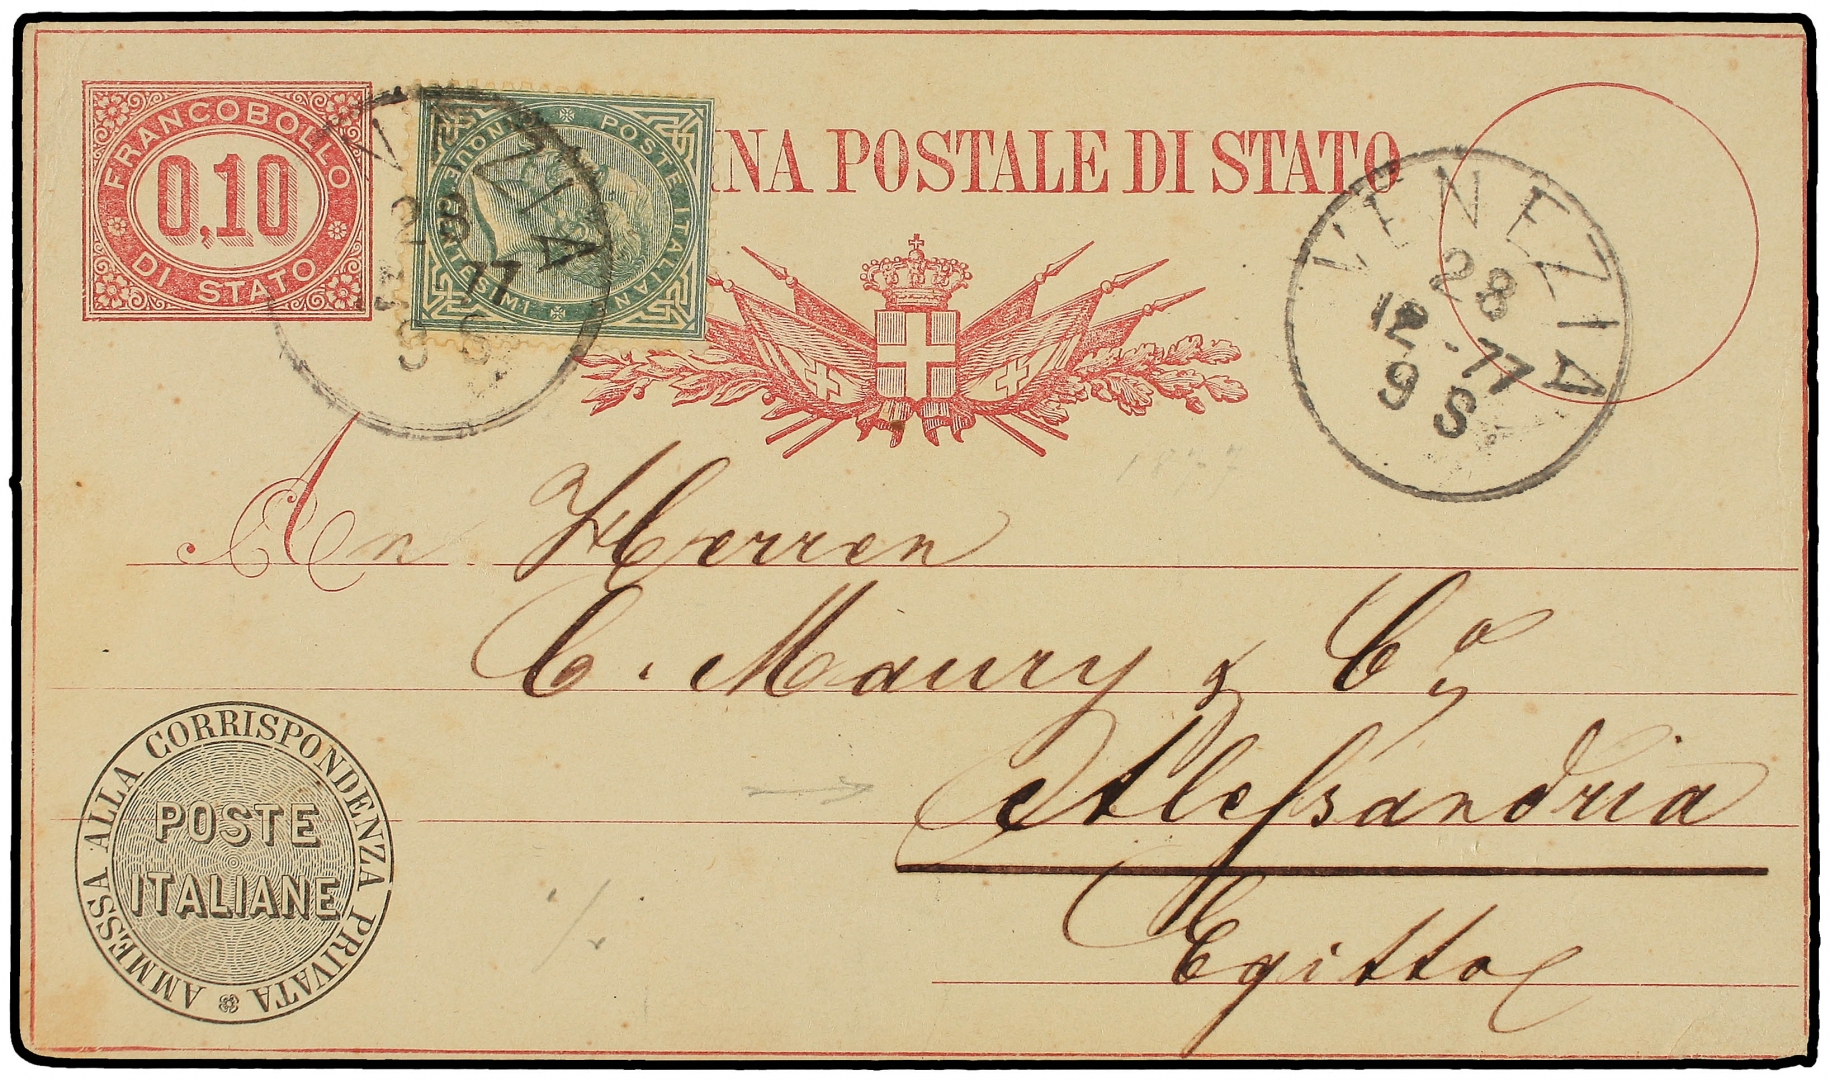 FRANCOBOLLO
0,10
DI STATO
POSTE ITALIANE
CINQUE CENTESIMI
INA POSTALE DI STATO
VENEZIA
28
12 77
9 S
VENEZIA
28
12 - 77
9 S
1877
An Herren
C. Maury & Co
Alessandria
Egitto
AMMESSA ALLA CORRISPONDENZA PRIVATA
POSTE
ITALIANE